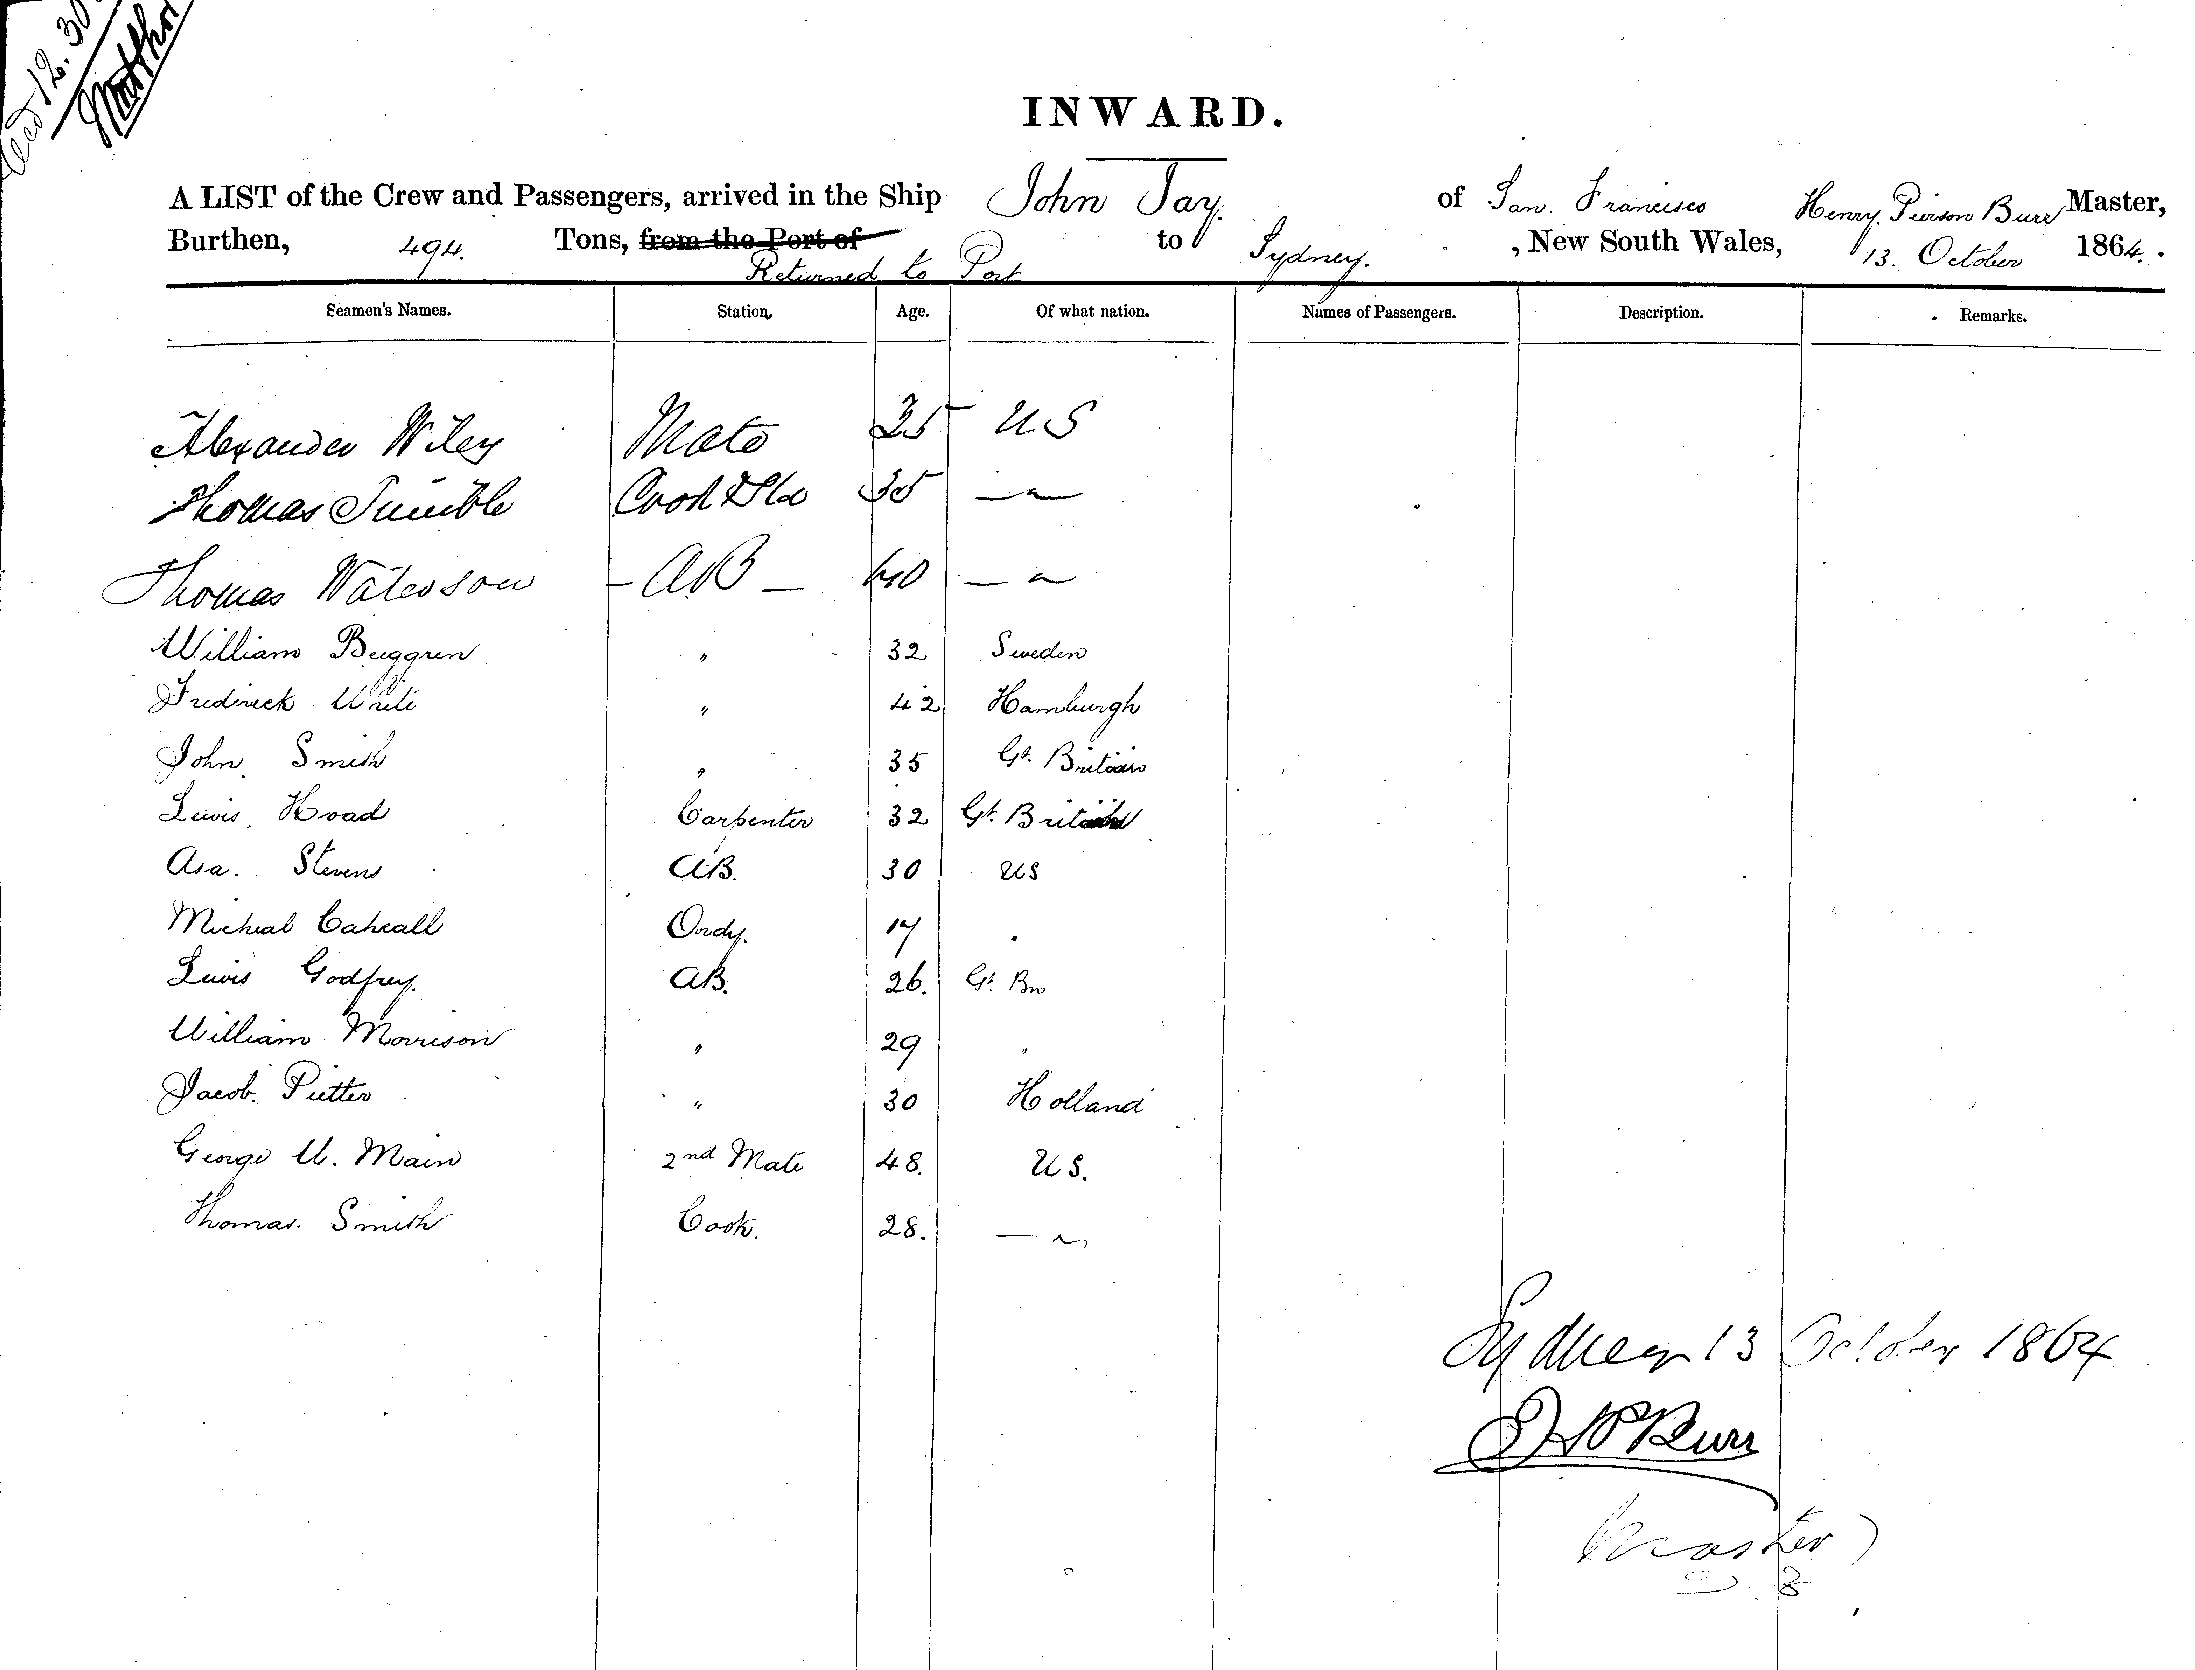 12.30
INWARD.
A LIST of the Crew and Passengers, arrived in the Ship John Jay. of San. Francisco Henry Pierson Burr Master,
Burthen, 494. Tons, from the Port of Returned to Port to Sydney. , New South Wales, 13. October 1864.
Seamen's Names. Station, Age. Of what nation. Names of Passengers. Description. Remarks.
Alexander Wiley Mate 35 U S
Thomas Cook & Std 35 — " —
Thomas Waterson - AB - 40 — "
William Beggren " 32 Sweden
Frederick White " 42 Hamburgh
John. Smith " 35 Gt. Britain
Lewis. Hoad Carpenter 32 Gt. Britain
Asa. Stevens AB. 30 US
Micheal Caheall Ordy. 17 "
Lewis Godfrey. AB. 26. Gt. Bn
William Morrison " 29 "
Jacob. Pietter " 30 Holland
George W. Main 2nd Mate 48. U S.
Thomas. Smith Cook. 28. — "
Sydney 13 October 1864
H P Burr
Master